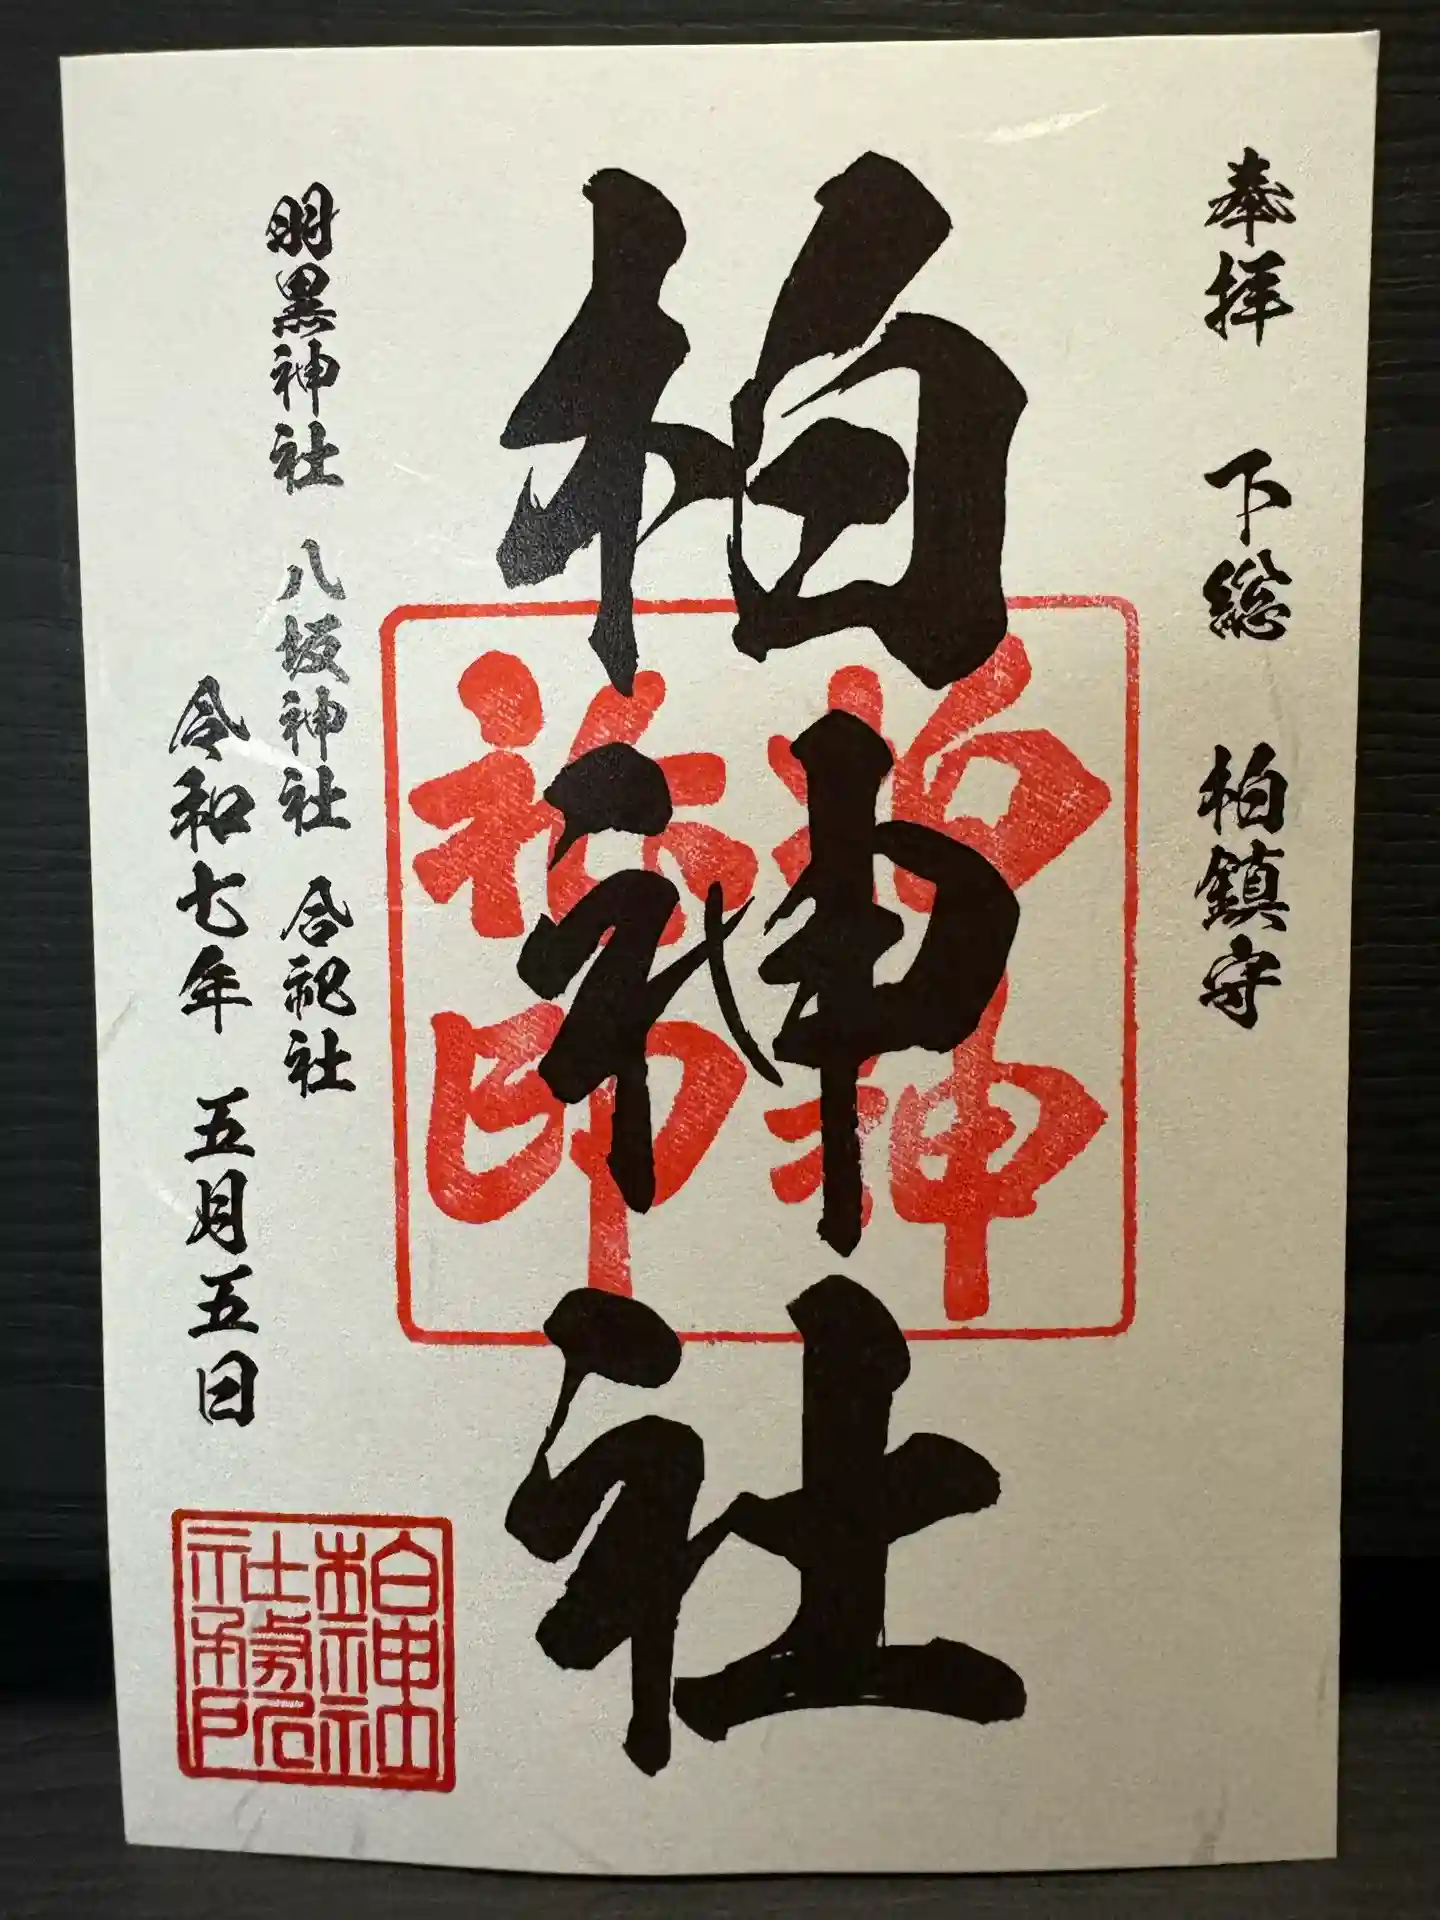 奉拝 下総 柏鎮守
柏神社
柏神
社印
羽黒神社 八坂神社 合祀社
令和七年 五月五日
柏神社
社務所